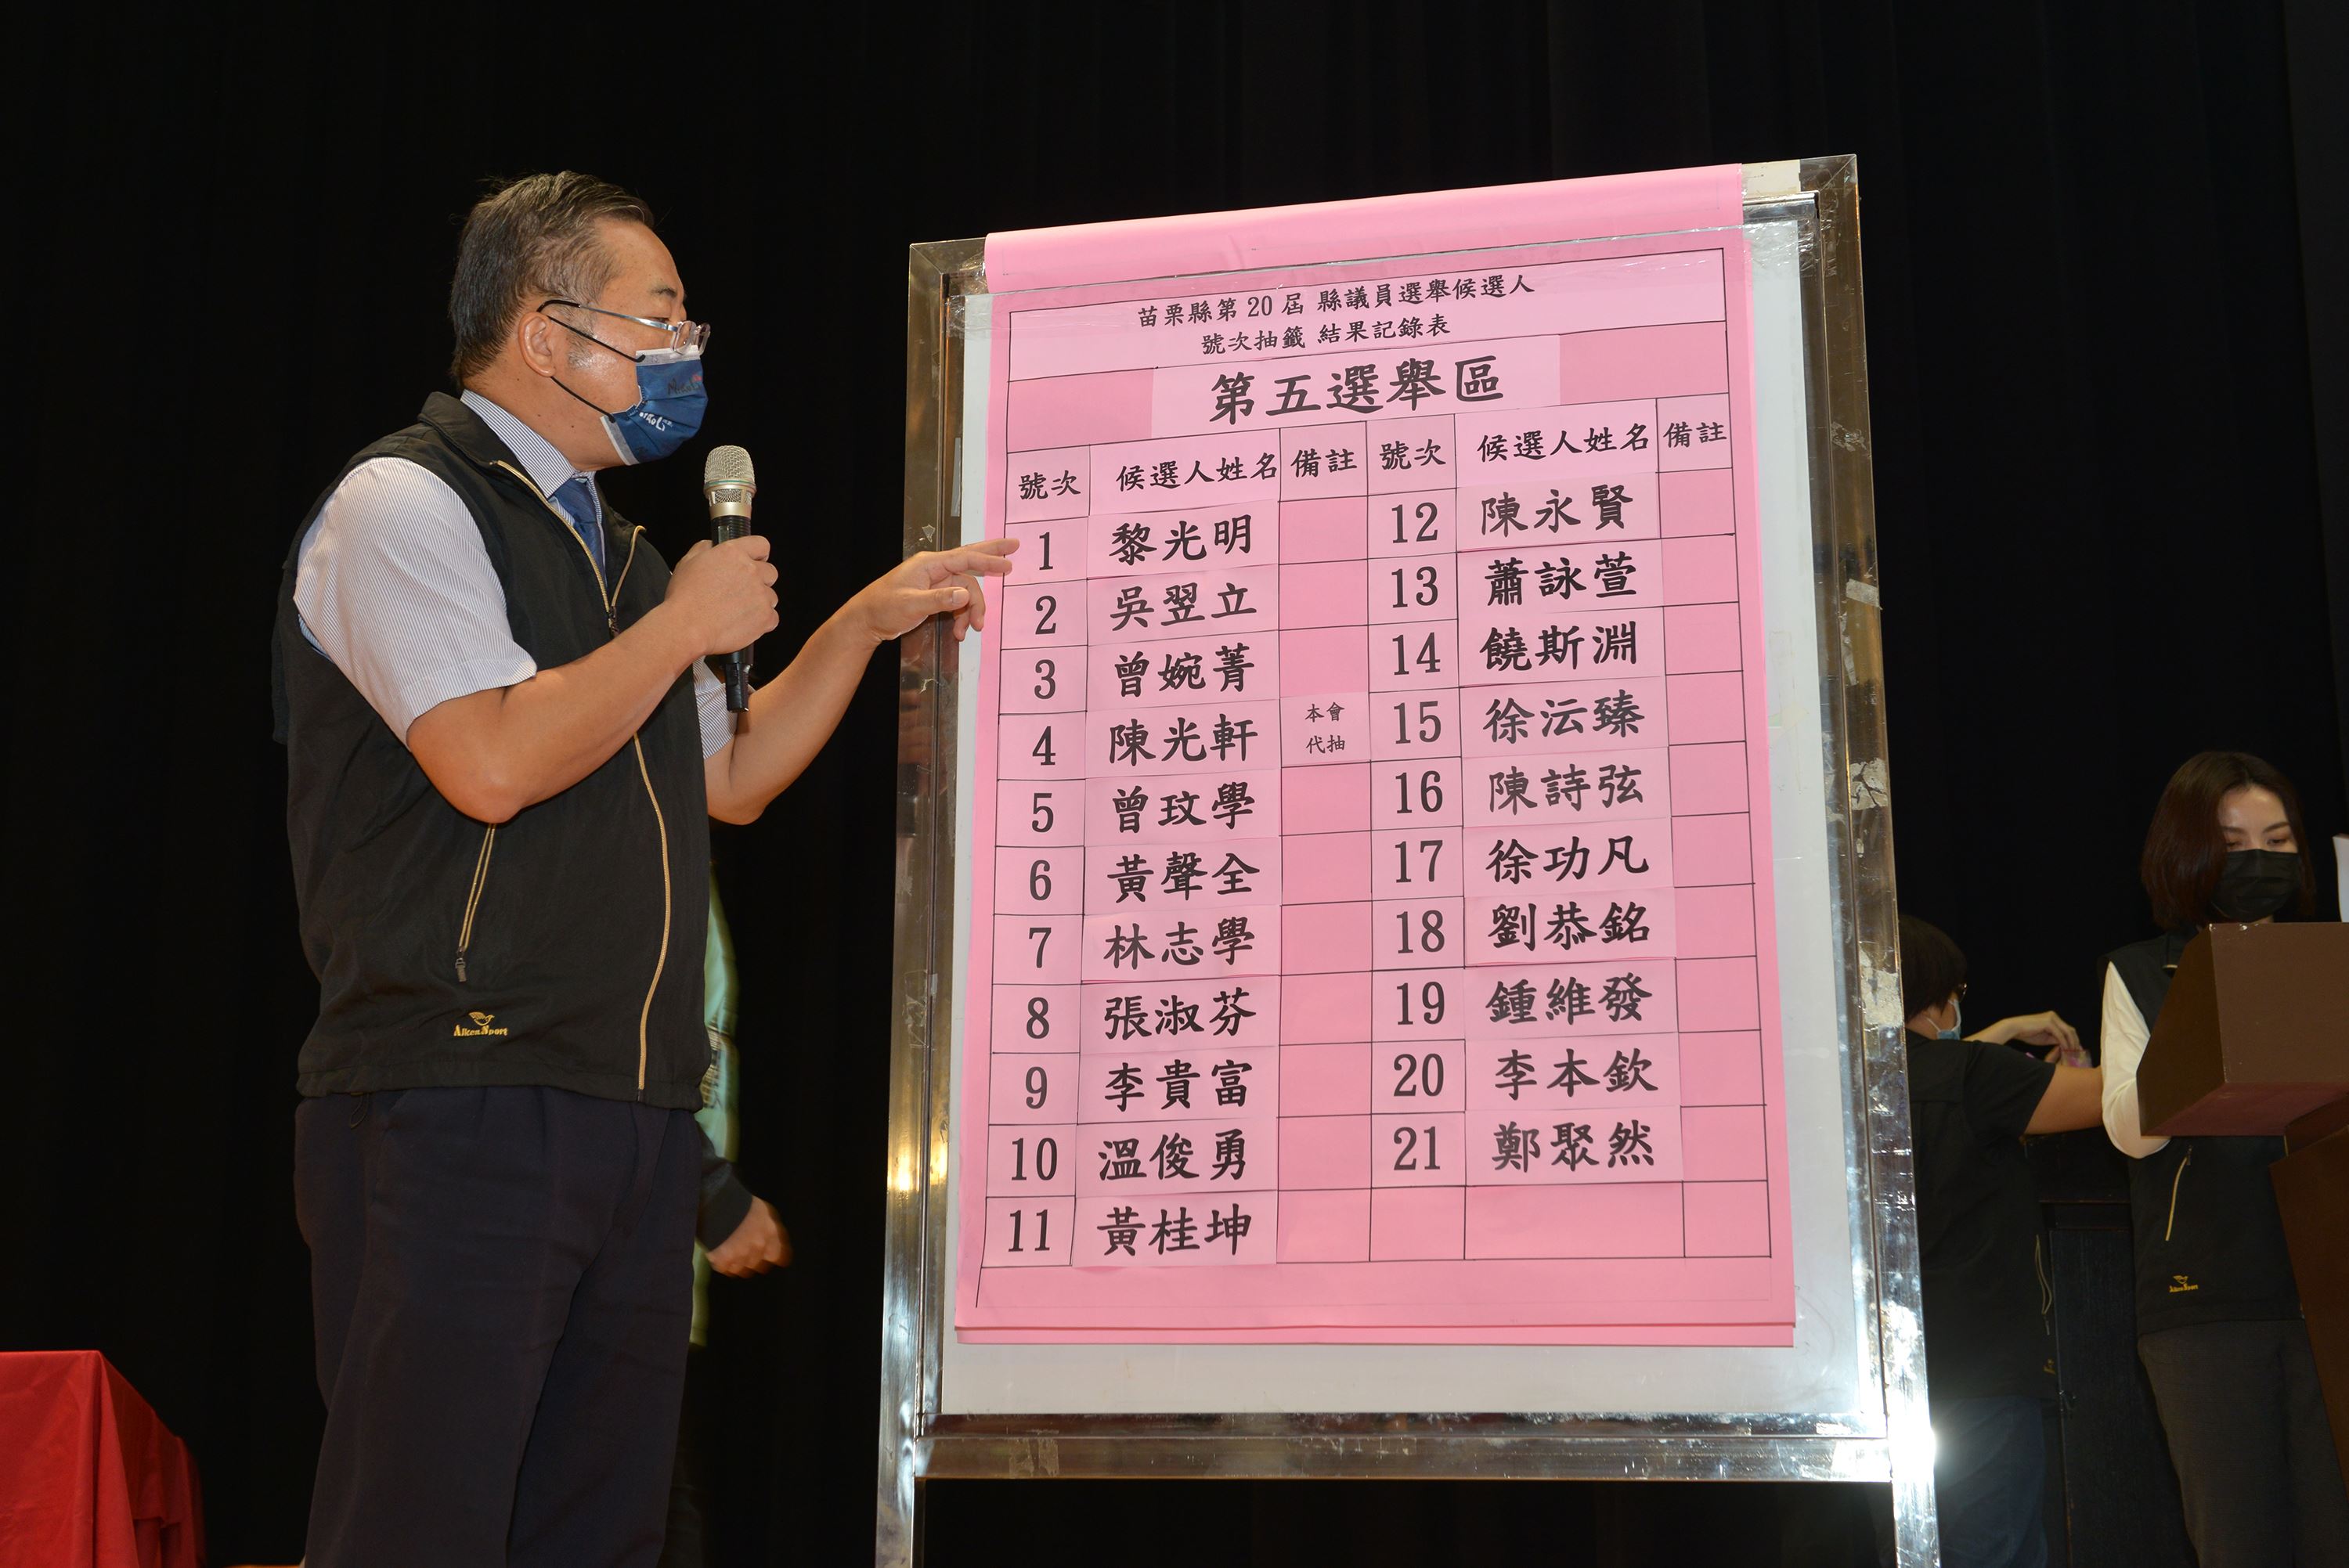 苗栗縣第20屆 縣議員選舉候選人
號次抽籤 結果記錄表
第五選舉區
號次 候選人姓名 備註 號次 候選人姓名 備註
1 黎光明 12 陳永賢
2 吳翌立 13 蕭詠萱
3 曾婉菁 14 饒斯淵
4 陳光軒 本會 代抽 15 徐沄臻
5 曾玟學 16 陳詩弦
6 黃聲全 17 徐功凡
7 林志學 18 劉恭銘
8 張淑芬 19 鍾維發
9 李貴富 20 李本欽
10 溫俊勇 21 鄭聚然
11 黃桂坤
AikenSport
AikenSport